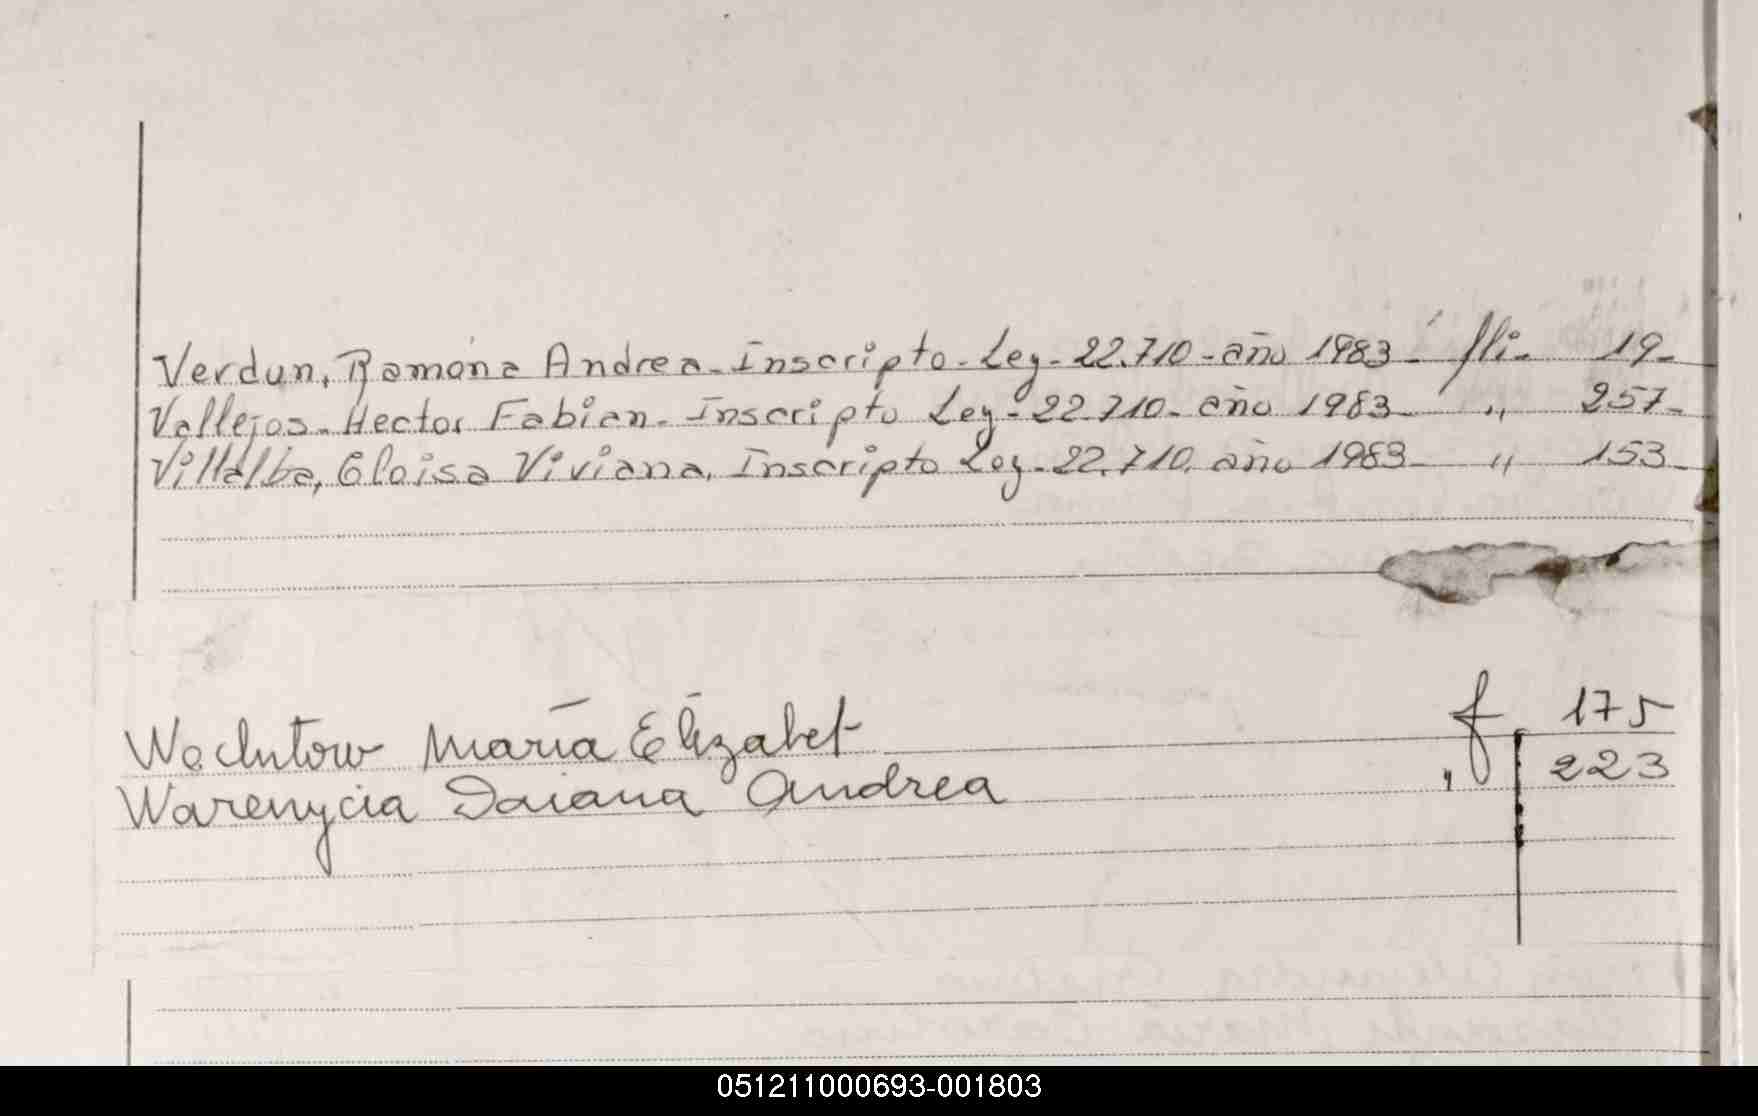 Verdun, Ramona Andrea - Inscripto - Ley - 22.710 - año 1983 - fli - 19 -
Vallejos - Hector Fabian - Inscripto Ley - 22.710 - año 1983 - " 257 -
Villalba, Eloisa Viviana, Inscripto Ley - 22.710, año 1983 - " 153 -
Wachutow María Elizabet f 175
Warenycia Daiana Andrea " 223
051211000693-001803